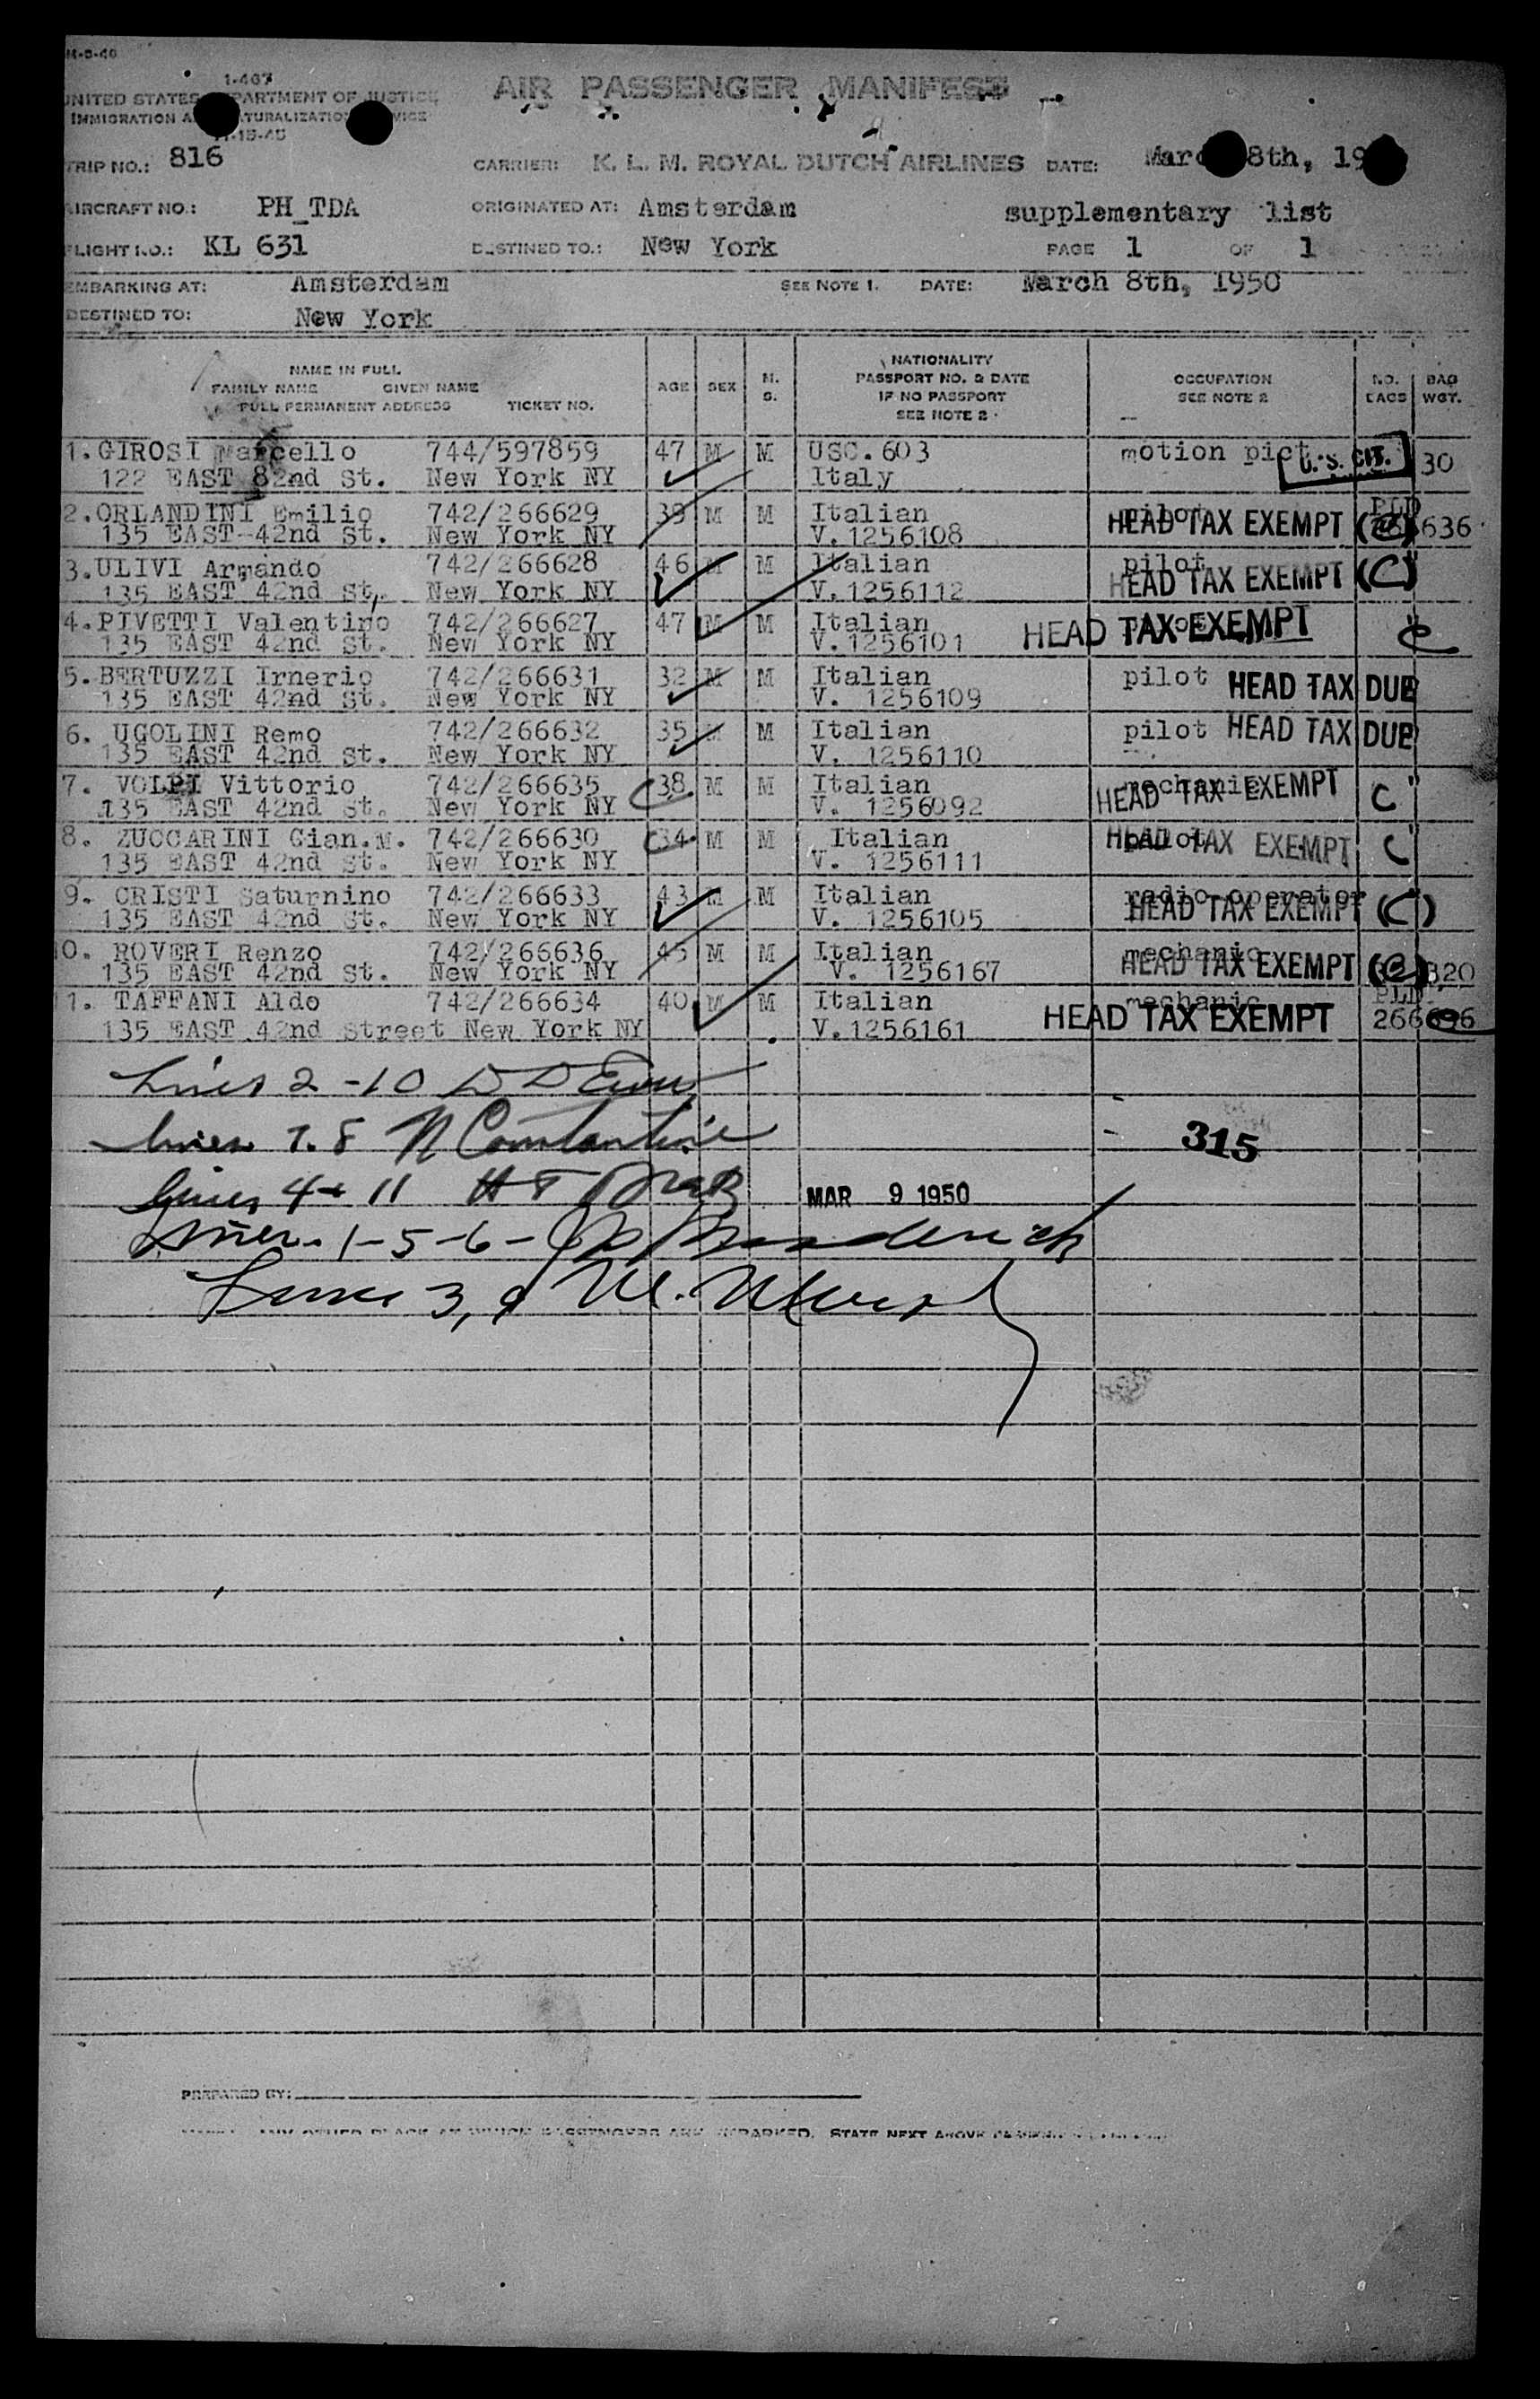 1-467
UNITED STATES DEPARTMENT OF JUSTICE
IMMIGRATION NATURALIZATION
11-15-45
AIR PASSENGER MANIFEST
TRIP NO.: 816 CARRIER: K. L. M. ROYAL DUTCH AIRLINES DATE: March 8th, 19
AIRCRAFT NO.: PH_TDA ORIGINATED AT: Amsterdam supplementary list
FLIGHT NO.: KL 631 DESTINED TO.: New York PAGE 1 OF 1
EMBARKING AT: Amsterdam SEE NOTE 1. DATE: March 8th, 1950
DESTINED TO: New York
NAME IN FULL
FAMILY NAME GIVEN NAME
FULL PERMANENT ADDRESS TICKET NO.
AGE SEX M. S.
NATIONALITY
PASSPORT NO. & DATE
IF NO PASSPORT
SEE NOTE 2
OCCUPATION
SEE NOTE 2
NO. BAGS BAG WGT.
1. GIROSI Marcello 744/597859 47 M M USC. 603 motion pict U. S. CIT. 30
122 EAST 82nd St. New York NY Italy
2. ORLANDINI Emilio 742/266629 39 M M Italian pilot PLD
135 EAST 42nd St. New York NY V. 1256108 HEAD TAX EXEMPT (C) 636
3. ULIVI Armando 742/266628 46 M M Italian pilot
135 EAST 42nd St. New York NY V. 1256112 HEAD TAX EXEMPT (C) "
4. PIVETTI Valentino 742/266627 47 M M Italian pilot
135 EAST 42nd St. New York NY V. 1256101 HEAD TAX EXEMPT C "
5. BERTUZZI Irnerio 742/266631 32 M M Italian pilot HEAD TAX DUE
135 EAST 42nd St. New York NY V. 1256109
6. UGOLINI Remo 742/266632 35 M M Italian pilot HEAD TAX DUE
135 EAST 42nd St. New York NY V. 1256110
7. VOLPI Vittorio 742/266635 C 38. M M Italian mechanic
135 EAST 42nd St. New York NY V. 1256092 HEAD TAX EXEMPT C "
8. ZUCCARINI Gian.M. 742/266630 C 34. M M Italian pilot HEAD TAX EXEMPT C "
135 EAST 42nd St. New York NY V. 1256111
9. CRISTI Saturnino 742/266633 43 M M Italian radio operator
135 EAST 42nd St. New York NY V. 1256105 HEAD TAX EXEMPT (C) "
10. ROVERI Renzo 742/266636 45 M M Italian mechanic
135 EAST 42nd St. New York NY V. 1256167 HEAD TAX EXEMPT (C) 320
11. TAFFANI Aldo 742/266634 40 M M Italian mechanic PLD.
135 EAST 42nd Street New York NY V. 1256161 HEAD TAX EXEMPT
Lines 2 - 10
Lines 7. 8 N Constantine
315
Lines 4 + 11
MAR 9 1950
Lines - 1 - 5 - 6 -
Lines 3, 9 M.
PREPARED BY:
ANY OTHER PLACE AT WHICH PASSENGERS ARE EMBARKED, STATE NEXT ABOVE